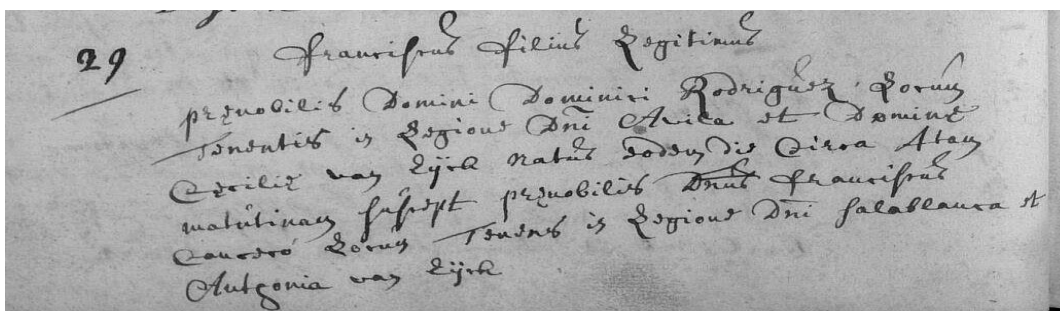 29 Franciscus filius Legitimus
pręnobilis Domini Dominici Rodriguez Locum
Tenentis in Legione Dni Avila et Dominę
Cęcilię van Eÿck natus eodem die Circa 4tam
matutinam suscept pręnobilis Dnus Franciscus
Cancero Locum Tenens in Legione Dni Salablanca et
Antꝫonia van Eÿck